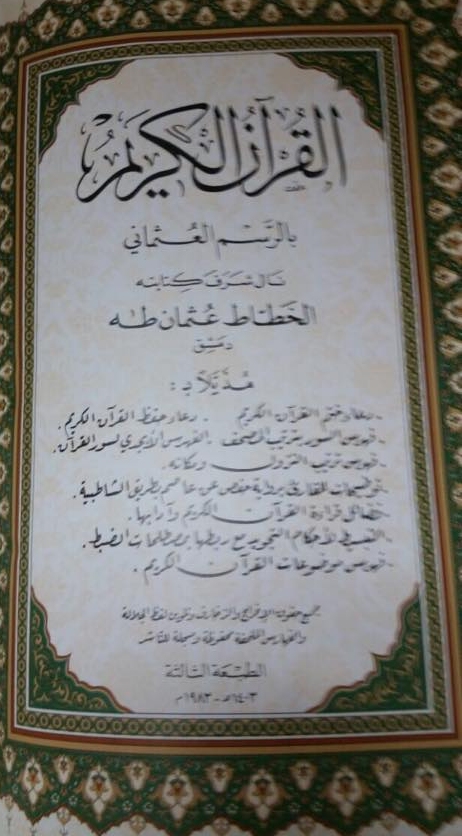 القُرآنُ الكَرِيمُ
بالرَّسْمِ العُثماني
نَالَ شَرَفَ كِتَابَتِه
الخَطّاط عُثمان طٰه
دمشق
مُذَيَّلاً بـ :
- دعاء ختم القرآن الكريم - دعاء حفظ القرآن الكريم .
- فهرس السور بترتيب المصحف - الفهرس الأبجدي لسور القرآن .
- فهرس ترتيب النزول ومكانه .
- توضيحات للقارئ برواية حفص عن عاصم بطريق الشاطبية .
- فضائل قراءة القرآن الكريم وآدابها .
- التبسيط لأحكام التجويد مع ربطها بمصطلحات الضبط .
- فهرس موضوعات القرآن الكريم .
جميع حقوق الإخراج والزخارف وتلوين لفظ الجلالة
والفهارس الملحقة محفوظة ومسجلة للناشر
الطبعة الثالثة
١٤٠٣هـ - ١٩٨٣م